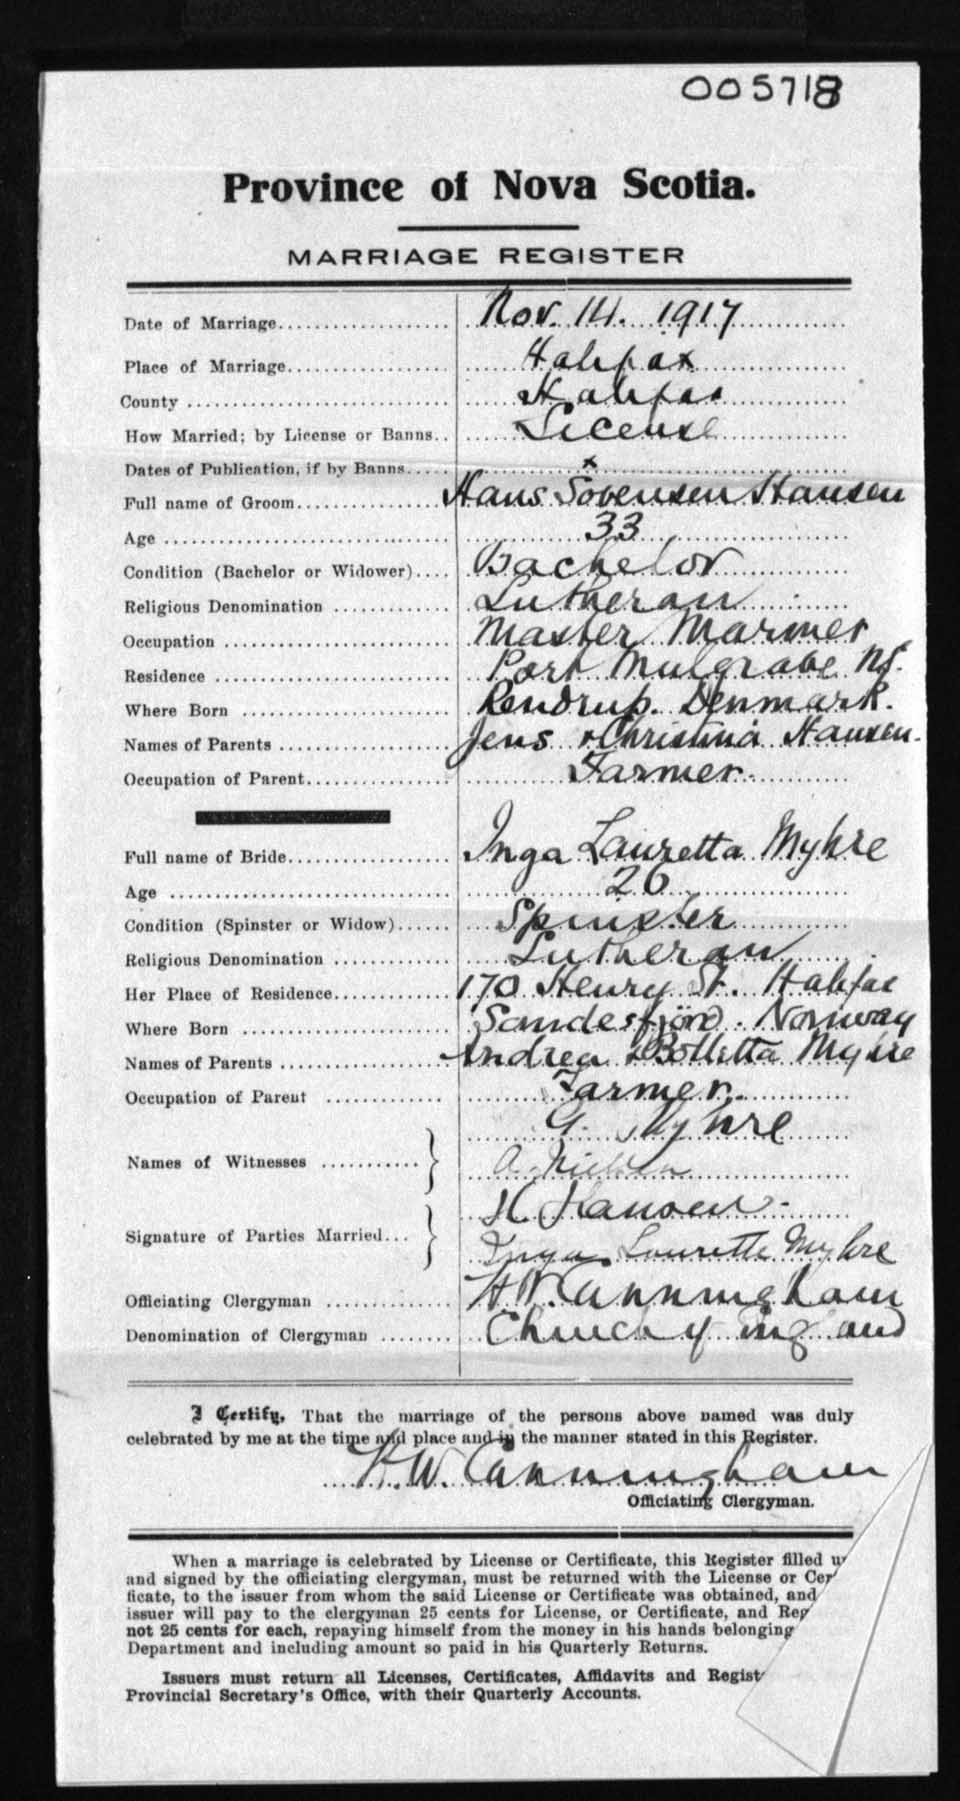 005718
Province of Nova Scotia.
MARRIAGE REGISTER
Date of Marriage Nov. 14. 1917
Place of Marriage Halifax
County Halifax
How Married; by License or Banns License
Dates of Publication, if by Banns x
Full name of Groom Hans Sorensen Hansen
Age 33
Condition (Bachelor or Widower) Bachelor
Religious Denomination Lutheran
Occupation Master Mariner
Residence Port Mulgrave NS.
Where Born Rendrup. Denmark.
Names of Parents Jens & Christina Hansen.
Occupation of Parent Farmer.
Full name of Bride Inga Lauretta Myhre
Age 26
Condition (Spinster or Widow) Spinster
Religious Denomination Lutheran
Her Place of Residence 170 Henry St. Halifax
Where Born Sandesfjörd. Norway
Names of Parents Andrea & Bolletta Myhre
Occupation of Parent Farmer.
G. Myhre
Names of Witnesses A. Nielsen
H Hansen
Signature of Parties Married Inga Laurette Myhre
Officiating Clergyman H W. Cunningham
Denomination of Clergyman Church of England
I Certify, That the marriage of the persons above named was duly
celebrated by me at the time and place and in the manner stated in this Register.
H. W. Cunningham
Officiating Clergyman.
When a marriage is celebrated by License or Certificate, this Register filled u
and signed by the officiating clergyman, must be returned with the License or Cer
ficate, to the issuer from whom the said License or Certificate was obtained, and
issuer will pay to the clergyman 25 cents for License, or Certificate, and Reg
not 25 cents for each, repaying himself from the money in his hands belonging
Department and including amount so paid in his Quarterly Returns.
Issuers must return all Licenses, Certificates, Affidavits and Regist
Provincial Secretary's Office, with their Quarterly Accounts.